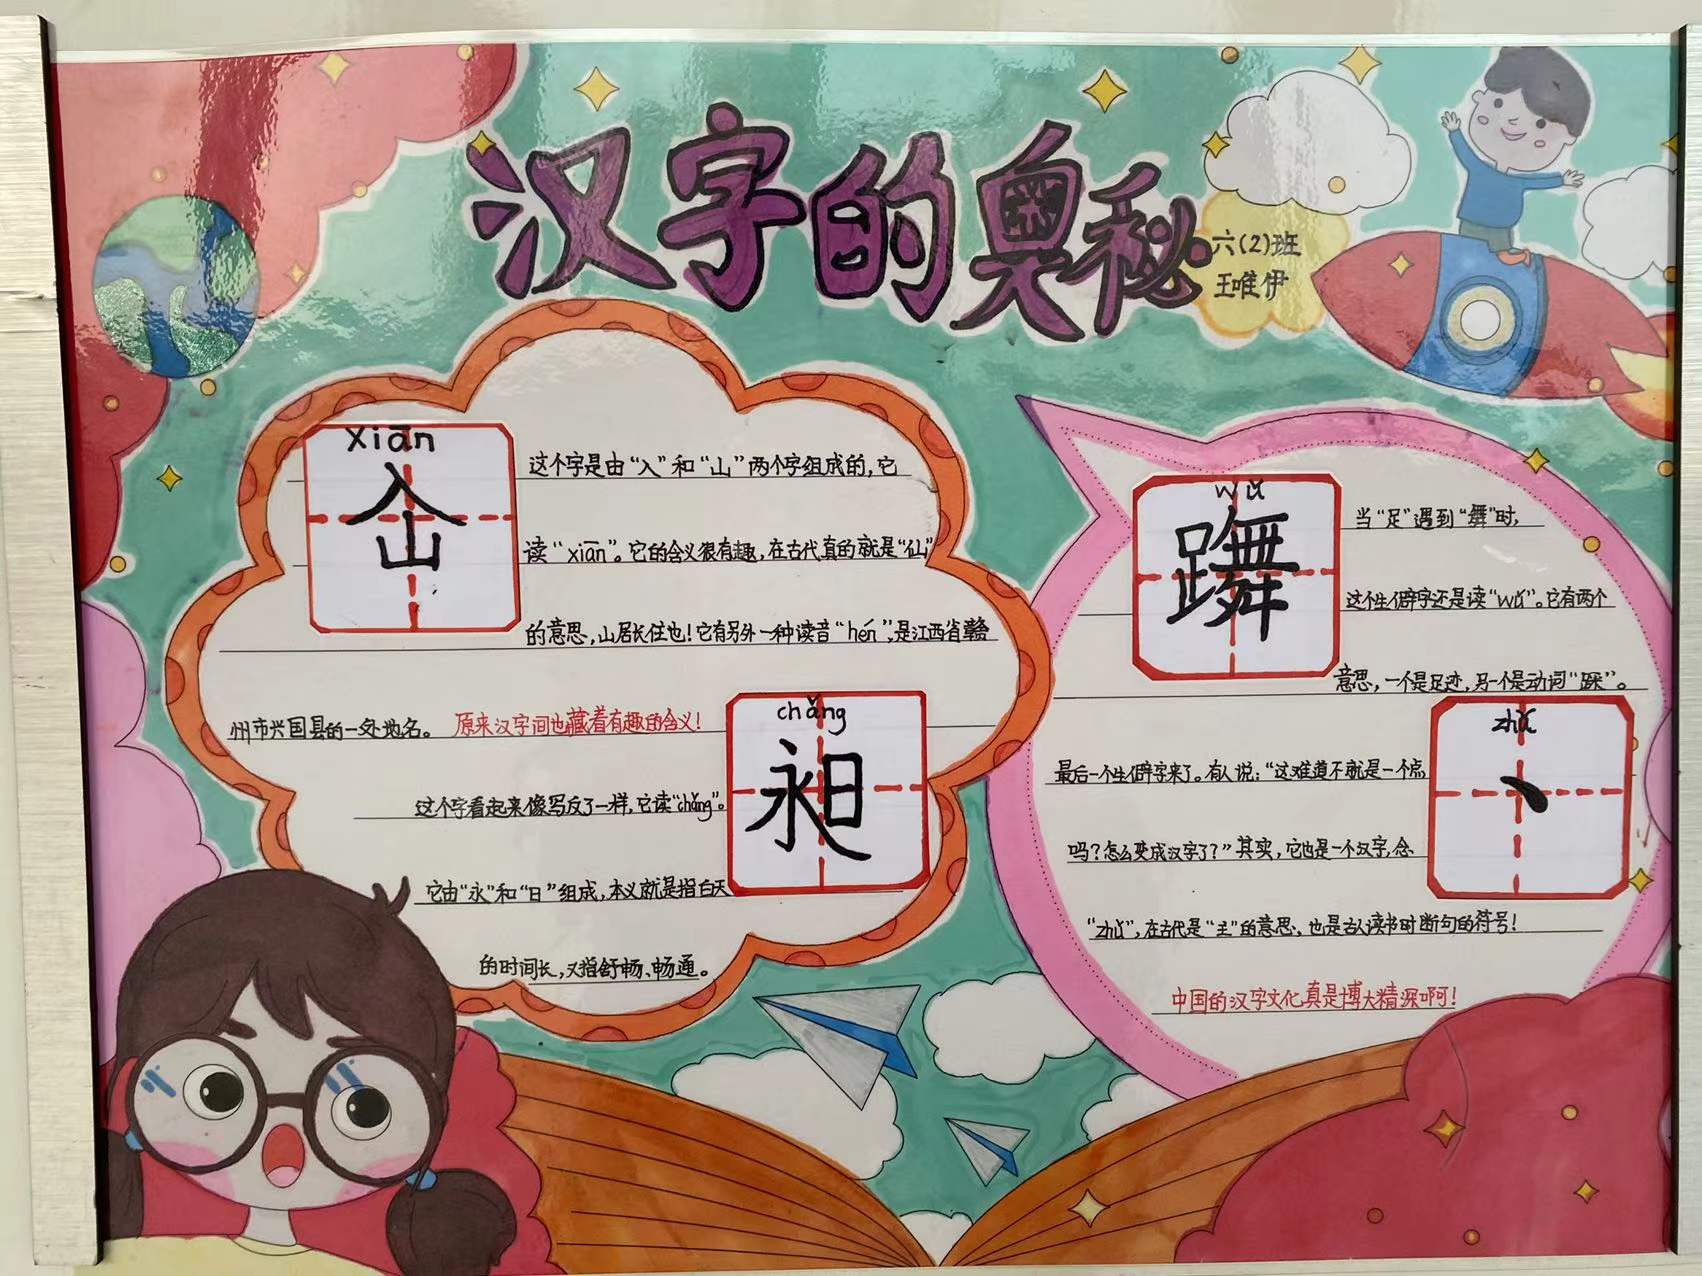 汉字的奥秘
六(2)班
王唯伊
xiān
仚
这个字是由“人”和“山”两个字组成的,它
读“xiān”。它的含义很有趣,在古代真的就是“仙”
的意思,山居长住也!它有另外一种读音“hén”,是江西省赣
州市兴国县的一处地名。原来汉字间也藏着有趣的含义!
chǎng
昶
这个字看起来像写反了一样,它读“chǎng”。
它由“永”和“日”组成,本义就是指白天
的时间长,又指舒畅、畅通。
wǔ
躌
当“足”遇到“舞”时,
这个生僻字还是读“wǔ”。它有两个
意思,一个是足迹,另一个是动词“踩”。
zhǔ
丶
最后一个生僻字来了。有人说:“这难道不就是一个点
吗?怎么变成汉字了?”其实,它也是一个汉字,念
“zhǔ”,在古代是“主”的意思,也是古人读书时断句的符号!
中国的汉字文化真是博大精深啊!